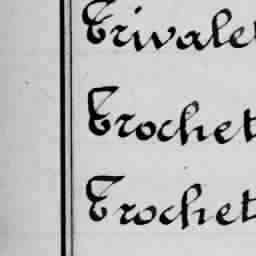 Trivale
Trochet
Trochet